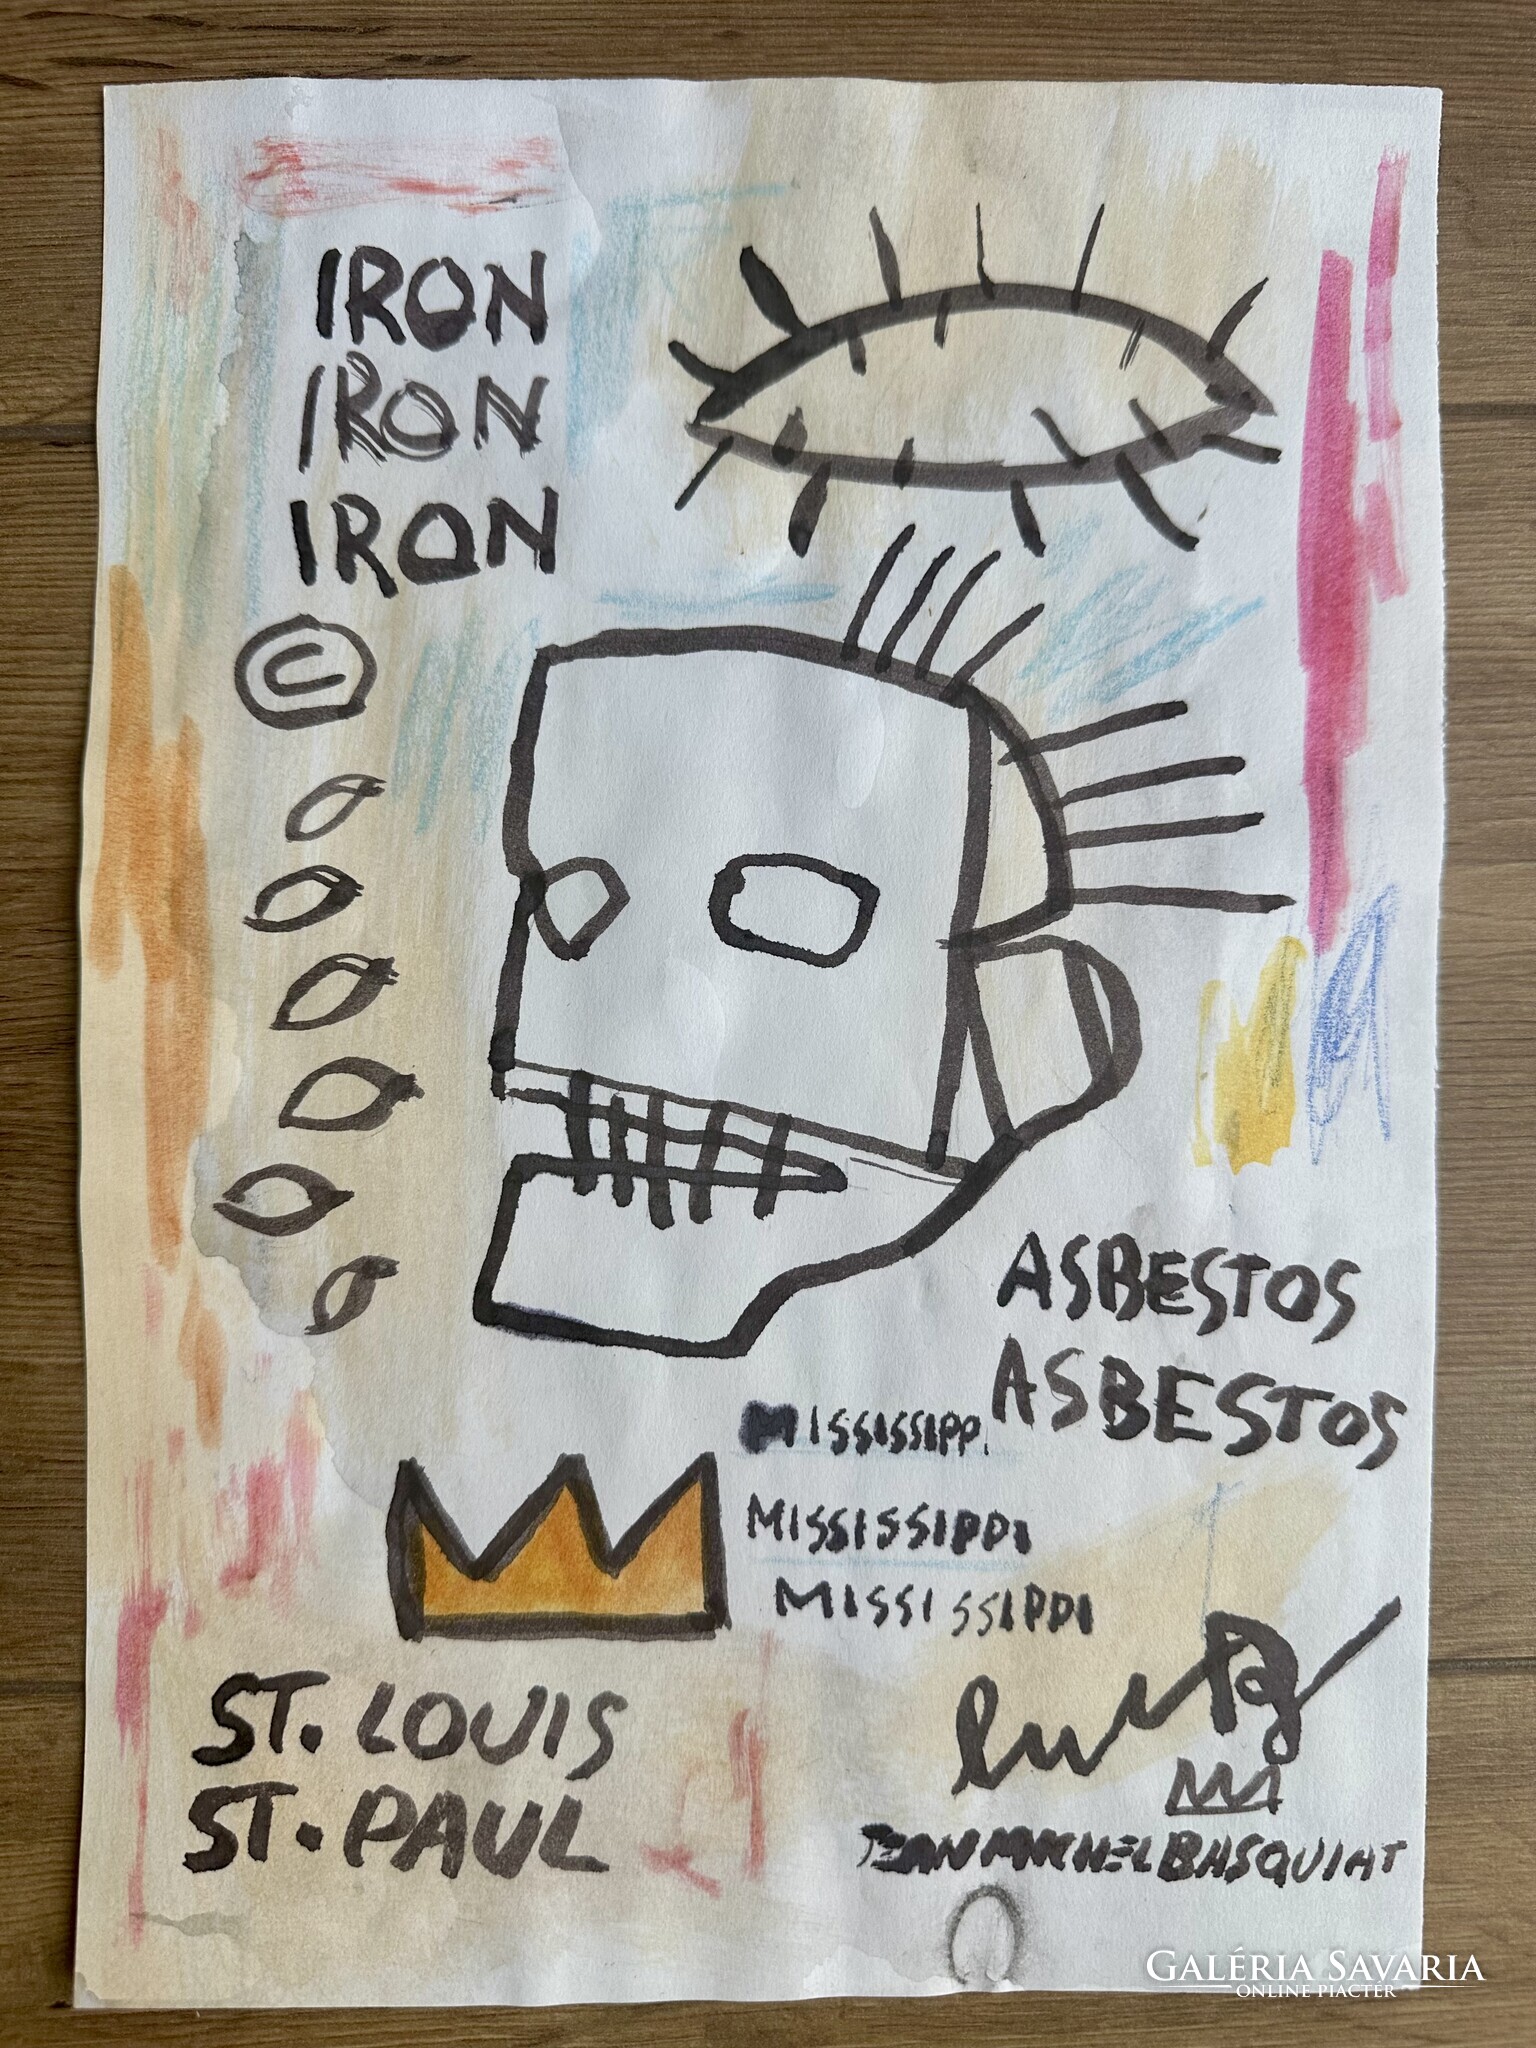 IRON
IRON
IRON
©
ASBESTOS
ASBESTOS
MISSISSIPPI
MISSISSIPPI
MISSISSIPPI
ST. LOUIS
ST. PAUL
JEAN MICHEL BASQUIAT
GALÉRIA SAVARIA
ONLINE PIACTÉR